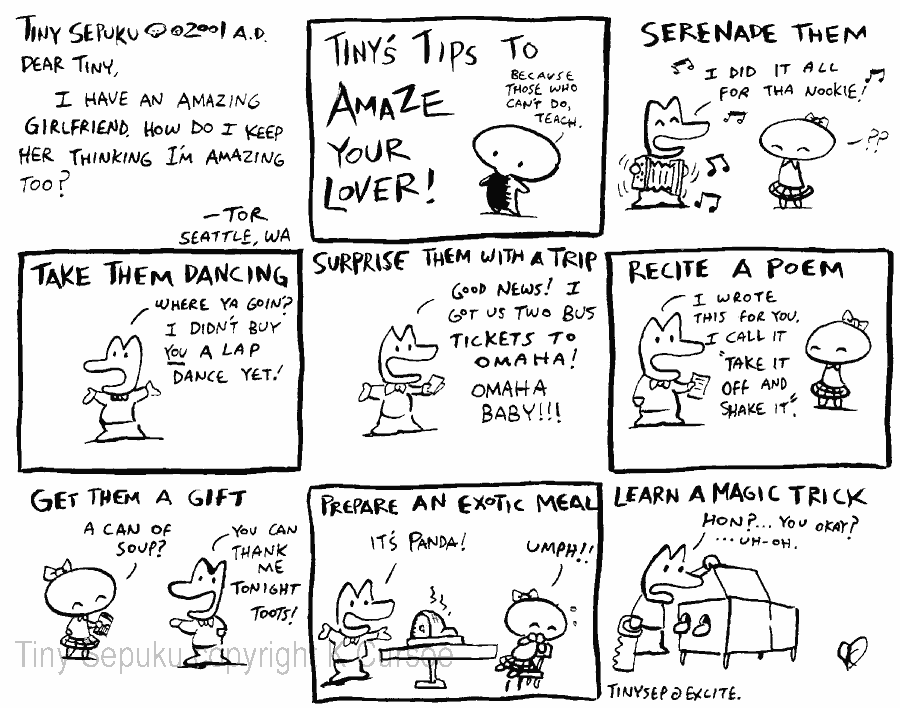 TINY SEPUKU ©2001 A.D.
DEAR TINY,
I HAVE AN AMAZING
GIRLFRIEND. HOW DO I KEEP
HER THINKING I'M AMAZING
TOO?
—TOR
SEATTLE, WA
TINY'S TIPS TO
AMAZE
YOUR
LOVER!
BECAUSE
THOSE WHO
CAN'T DO,
TEACH.
SERENADE THEM
I DID IT ALL
FOR THA NOOKIE!
—??
TAKE THEM DANCING
WHERE YA GOIN'?
I DIDN'T BUY
YOU A LAP
DANCE YET!
SURPRISE THEM WITH A TRIP
GOOD NEWS! I
GOT US TWO BUS
TICKETS TO
OMAHA!
OMAHA
BABY!!!
RECITE A POEM
I WROTE
THIS FOR YOU.
I CALL IT
"TAKE IT
OFF AND
SHAKE IT".
GET THEM A GIFT
A CAN OF
SOUP?
YOU CAN
THANK
ME
TONIGHT
TOOTS!
PREPARE AN EXOTIC MEAL
IT'S PANDA!
UMPH!!
LEARN A MAGIC TRICK
HON?... YOU OKAY?
...UH-OH.
Tiny Sepuku copyright K Cursoe
TINYSEP@EXCITE.